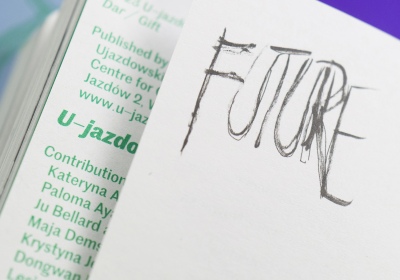 Dar / Gift
Published by
Ujazdowski
Centre for
Jazdów 2,
www.u-jaz
U-jazdo
Contribution
Kateryna A
Paloma Ay
Ju Bellard
Maja Dems
Krystyna Je
Dongwan
FUTURE